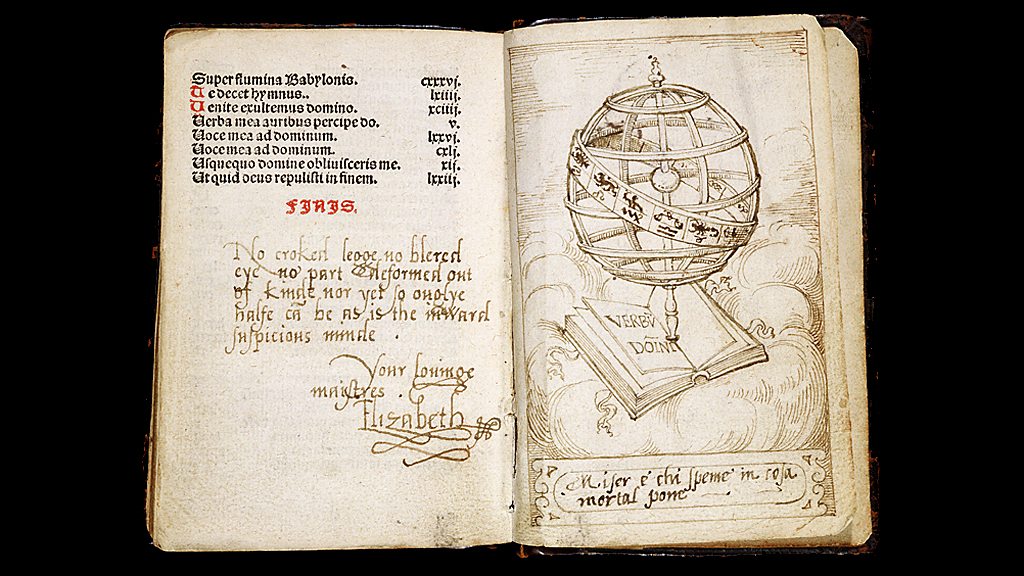 Super flumina Babylonis. cxxxvj.
Te decet hymnus.. lxiiij.
Venite exultemus domino. xciiij.
Verba mea auribus percipe do. v.
Voce mea ad dominum. lxxvj.
Voce mea ad dominum. cxlj.
Usquequo domine obliuisceris me. xij.
Ut quid deus repulisti in finem. lxxiij.
FINIS.
No croked legge no blered
eye no part deformed out
of kinde nor yet so onolye
halfe cā be as is the inward
suspicious minde
Your louinge
maistres
Elizabeth
VERBŪ
DOÎNI
Miser è chi speme in cosa
mortal pone